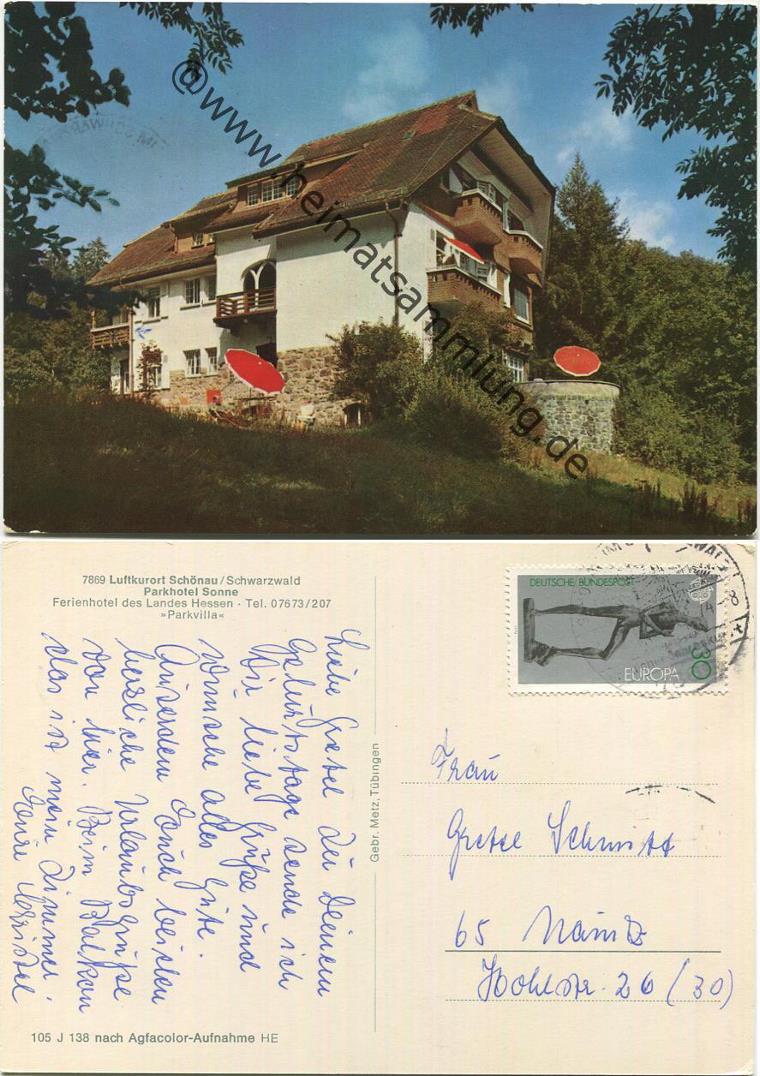 @www.heimatsammlung.de
7869 Luftkurort Schönau/Schwarzwald
Parkhotel Sonne
Ferienhotel des Landes Hessen · Tel. 07673/207
»Parkvilla«
Liebe Gretel zu Deinem
Geburtstage sende ich
Dir liebe Grüße und
wünsche alles Gute.
Ausserdem Euch beiden
herzliche Urlaubsgrüße
von hier. Beim Balkon
das ist mein Zimmer.
Eure Christel
105 J 138 nach Agfacolor-Aufnahme HE
Gebr. Metz, Tübingen
DEUTSCHE BUNDESPOST
EUROPA 30
Frau
Gretel Schmitt
65 Mainz
Hohlstr. 26 (30)